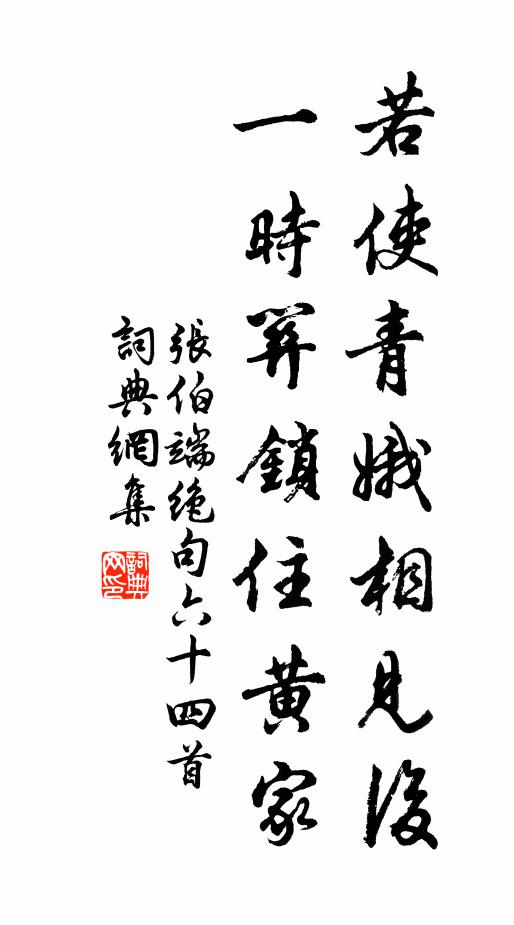 若使青娥相見後
一時關鎖住黃家
張伯端絶句六十四首
詞典網集
詞典
网印